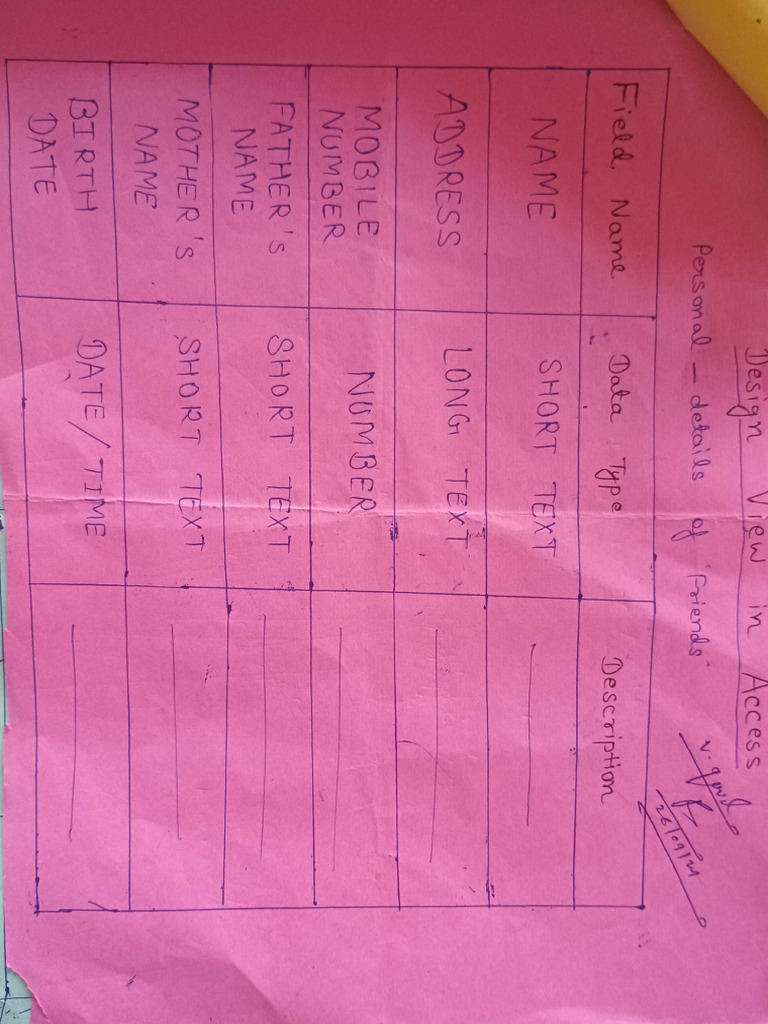 Design View in Access
Personal - details of "Friends"
v. good
26/09/24
Field Name Data Type Description
NAME SHORT TEXT
ADDRESS LONG TEXT
MOBILE
NUMBER NUMBER
FATHER'S
NAME SHORT TEXT
MOTHER'S
NAME SHORT TEXT
BIRTH
DATE DATE/TIME